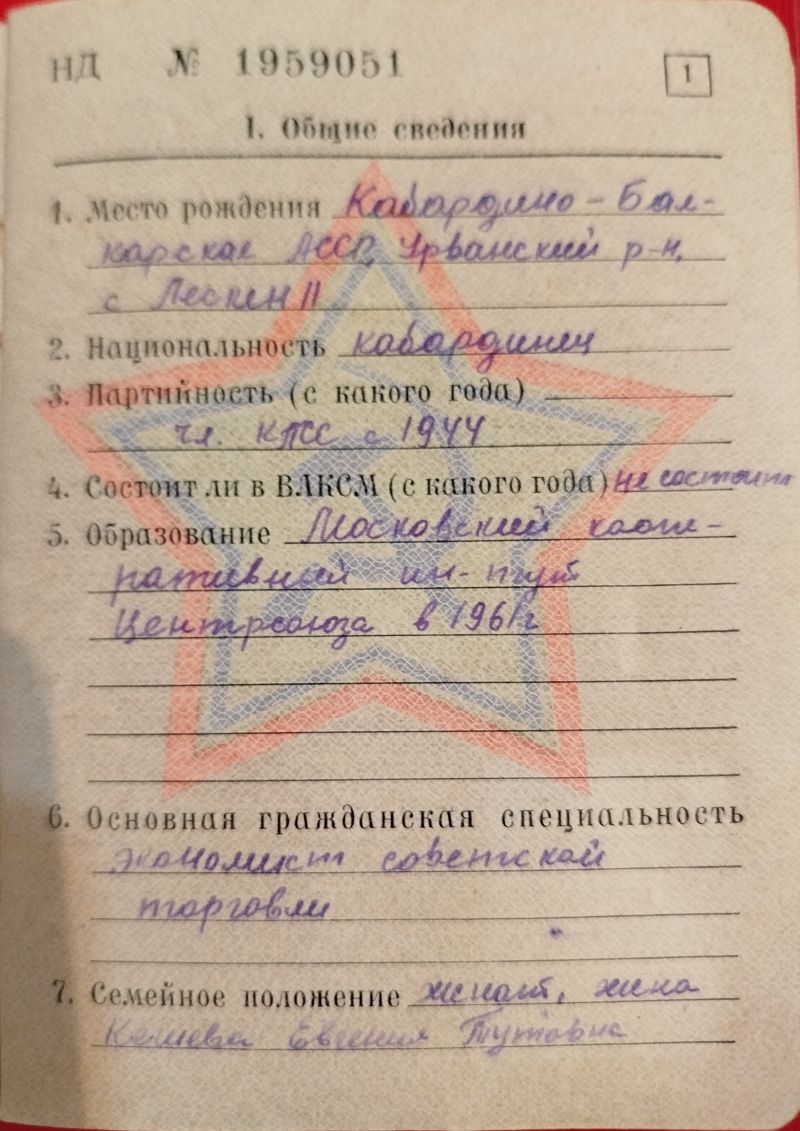 НД № 1959051
1
I. Общие сведения
1. Место рождения Кабардино-Бал-
карская АССР, Урванский р-н,
с Лескен II
2. Национальность кабардинец
3. Партийность (с какого года)
чл. КПСС с 1944
4. Состоит ли в ВЛКСМ (с какого года) не состоит
5. Образование Московский коопе-
ративный ин-тут
Центрсоюза в 1961г
6. Основная гражданская специальность
экономист советской
торговли
7. Семейное положение женат, жена
Евгения Тутовна